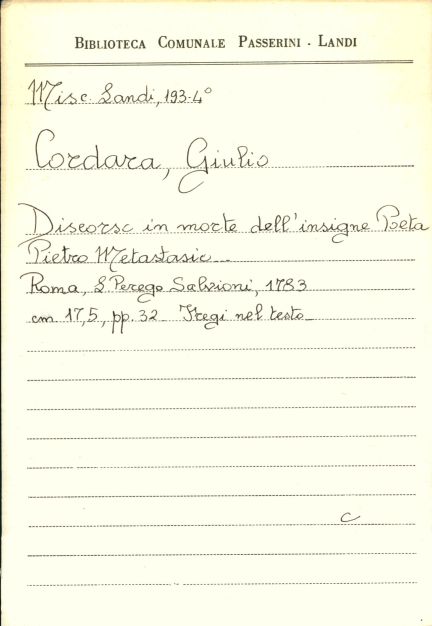 BIBLIOTECA COMUNALE PASSERINI - LANDI
Misc. Landi, 193-4°
Cordara, Giulio
Discorso in morte dell'insigne Poeta
Pietro Metastasio
Roma, L. Perego Salvioni, 1783
cm 17,5, pp. 32 Fregi nel testo
C